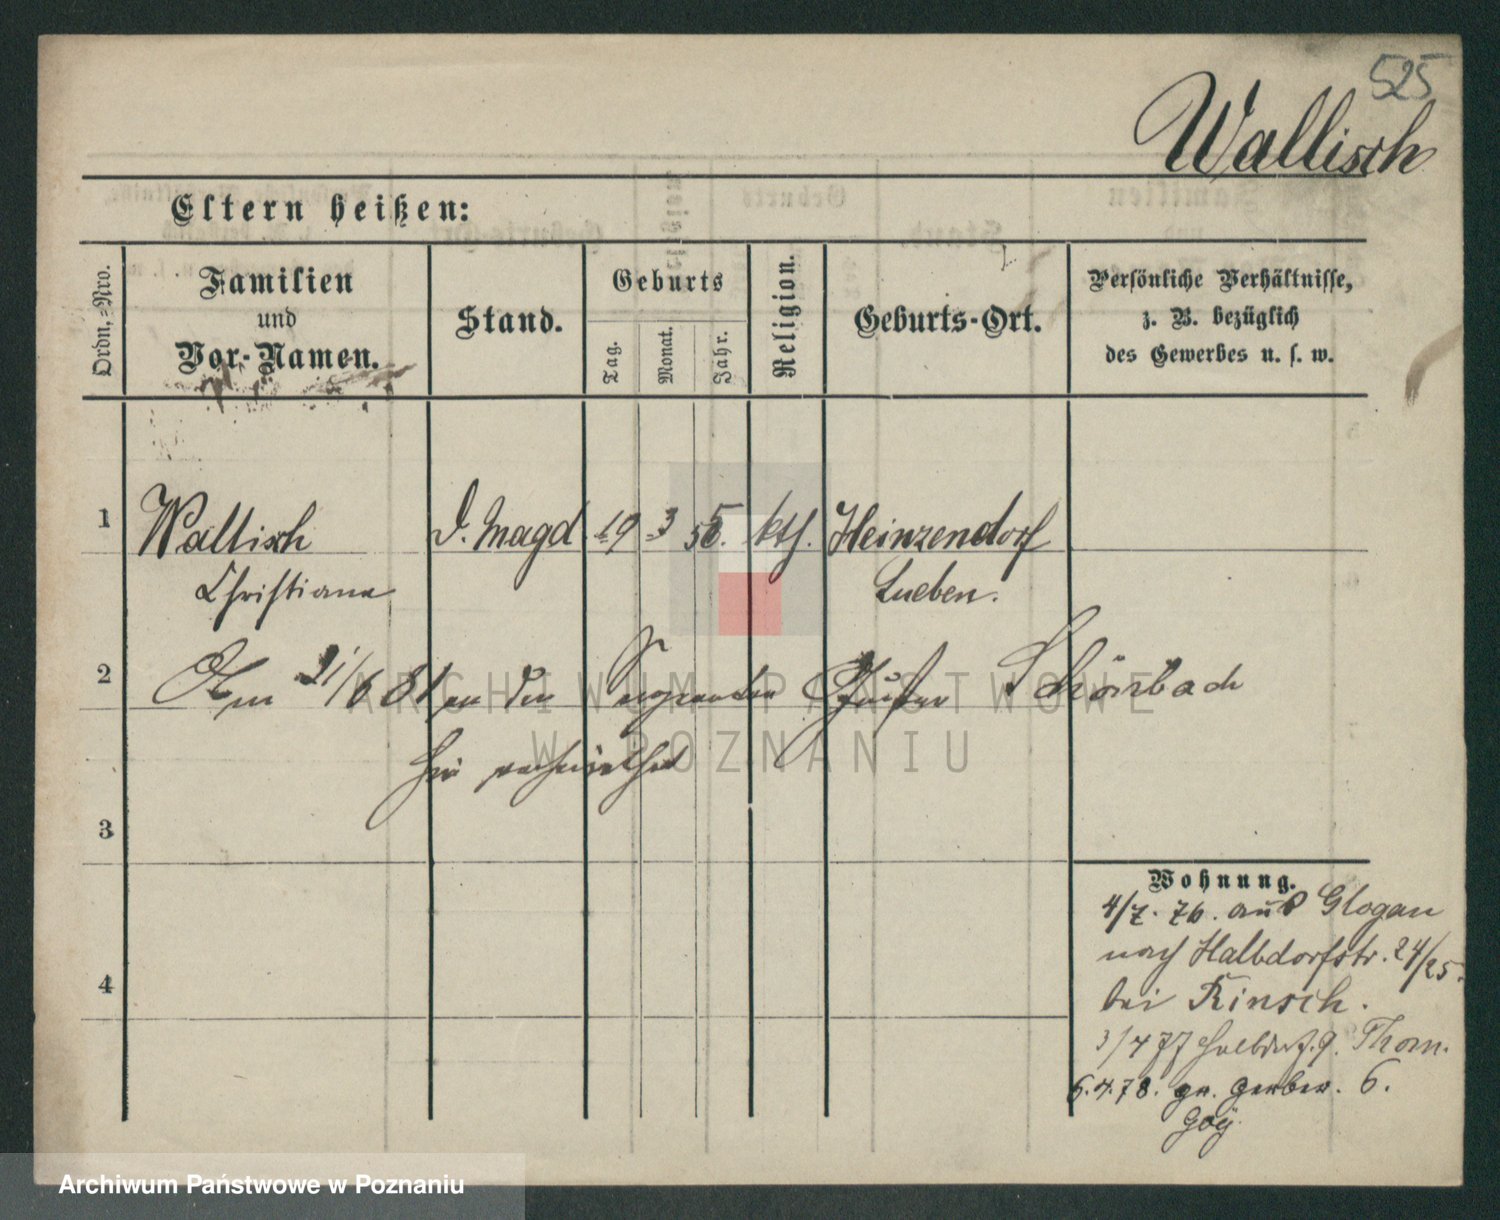 525
Wallisch
Eltern heißen:
Ordn.-Nro.
Familien
und
Vor-Namen.
Stand.
Geburts
Tag.
Monat.
Jahr.
Religion.
Geburts-Ort.
Persönliche Verhältnisse,
z. B. bezüglich
des Gewerbes u. s. w.
1 Wallisch d. Magd 19 3 55. kth. Heinzendorf
Christiane Lueben.
2 Am 21/6 81 an den Sergeanten Schönbach
hier verheirathet
3
4
Wohnung.
4/7. 76. aus Glogau
nach Halbdorfstr. 24/25.
bei Rinsch.
3/4 77 Halbdorf. 9. Thom.
6.4.78. gr. Gerber. 6.
Goÿ
ARCHIWUM PAŃSTWOWE
W POZNANIU
Archiwum Państwowe w Poznaniu